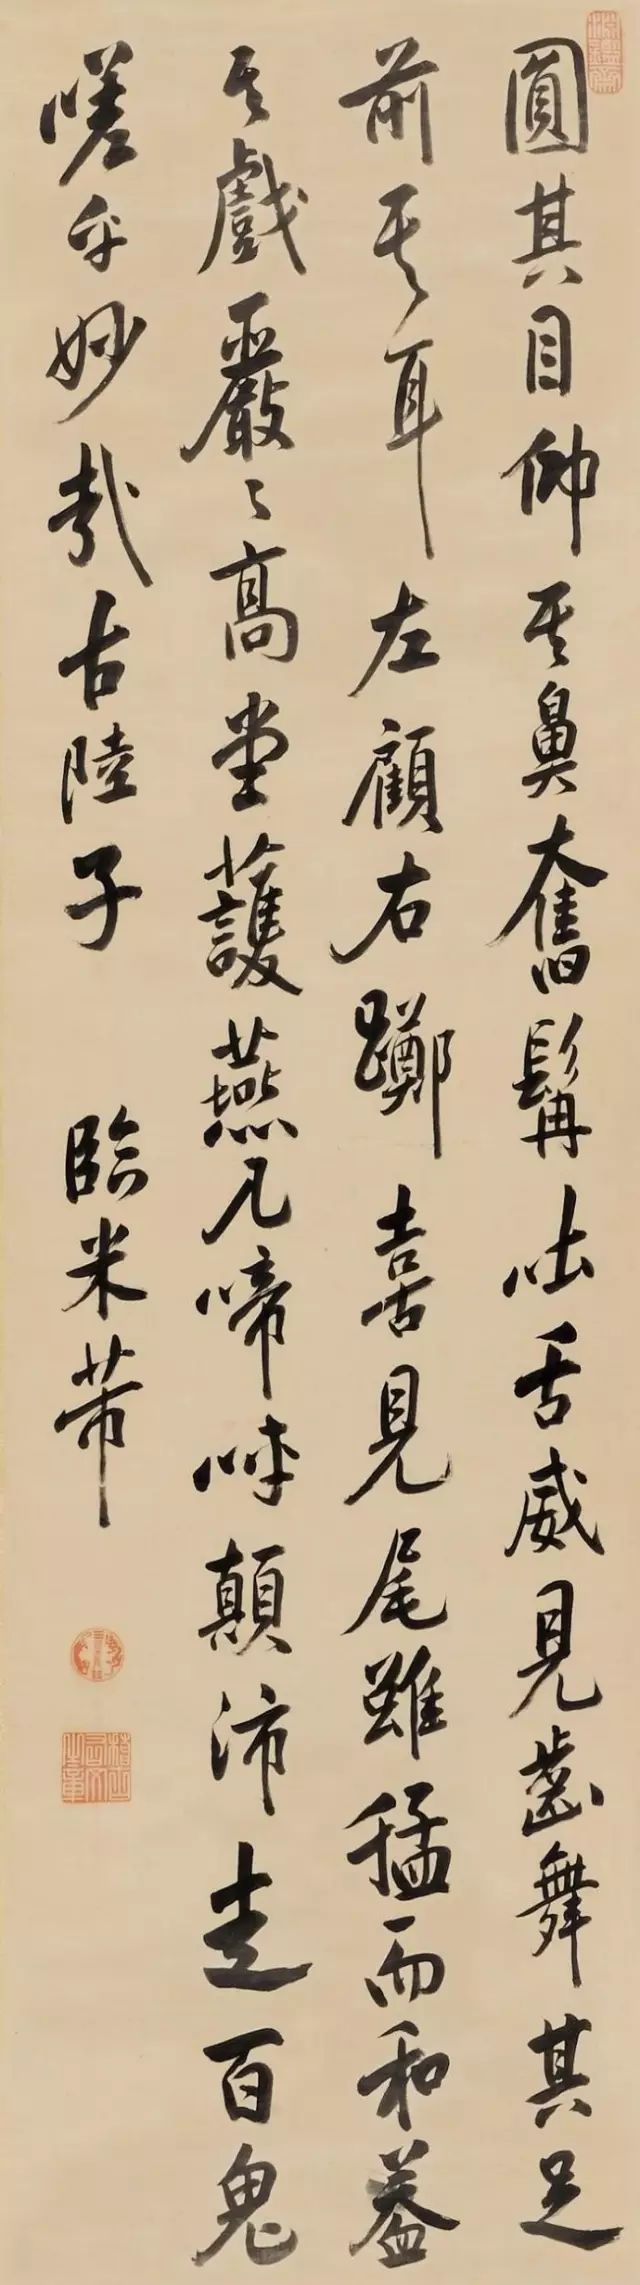 淵鑒齋
圓其目仰其鼻奮髯吐舌威見齒舞其足
前其耳左顧右躑喜見尾雖猛而和蓋
其戲嚴〻高堂護燕几啼呼顛沛走百鬼
嗟乎妙哉古陸子 臨米芾
稽古右文之章